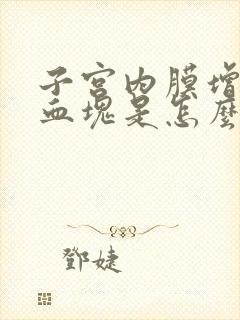 子宫内膜增
血块是怎麽
鄧婕